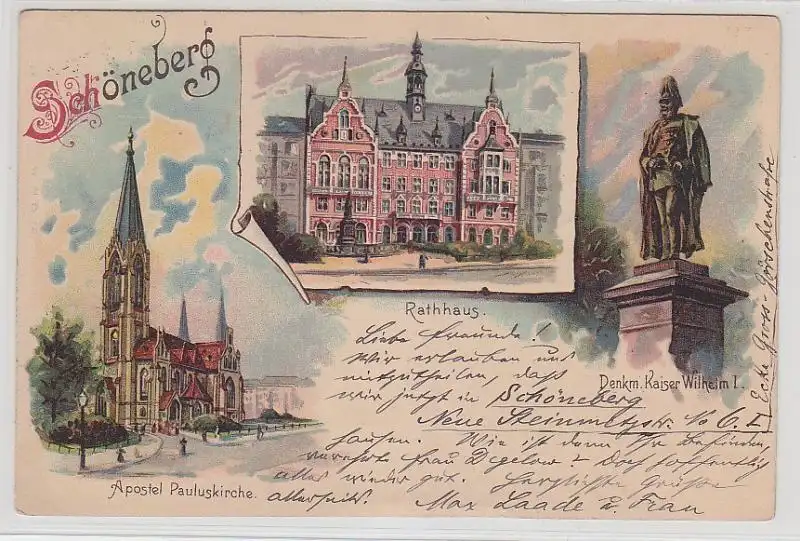 Schöneberg
Rathhaus.
Denkm. Kaiser Wilhelm I.
Apostel Pauluskirche.
Liebe Freunde!
Wir erlauben uns
mitzutheilen, daß
wir jetzt in Schöneberg
Neue Steinmetzstr. No 6. I
hausen. Wie ist denn Ihr Befinden,
verehrte Frau Digelow? Doch hoffentlich
alles wieder gut. Herzlichste Grüße
allerseits. Max Laade u. Frau
Ecke Gross-Görschenstraße